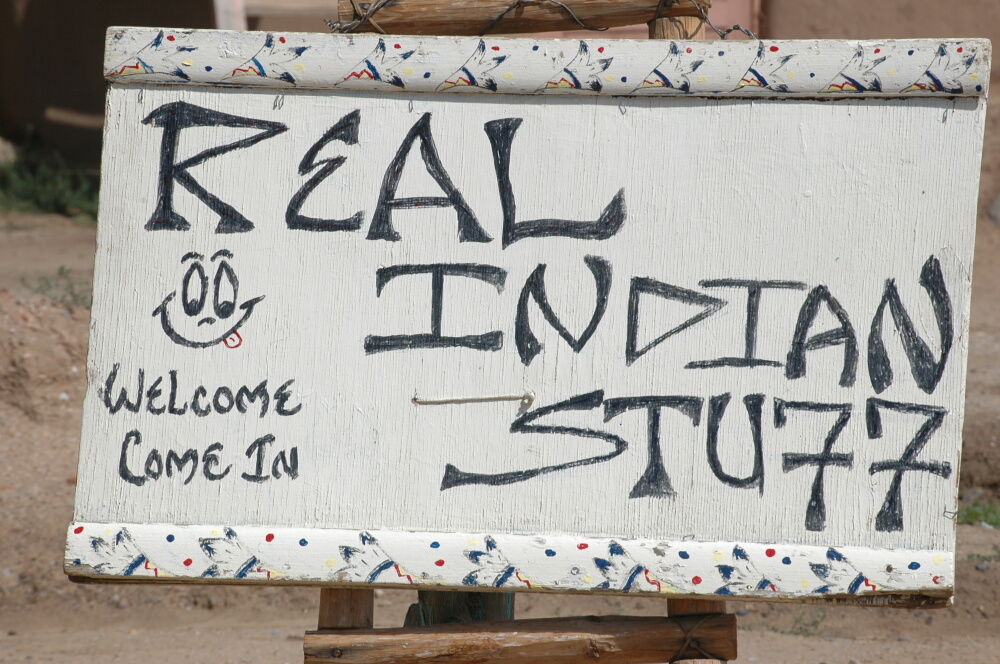 REAL
INDIAN
STUFF
WELCOME
COME IN